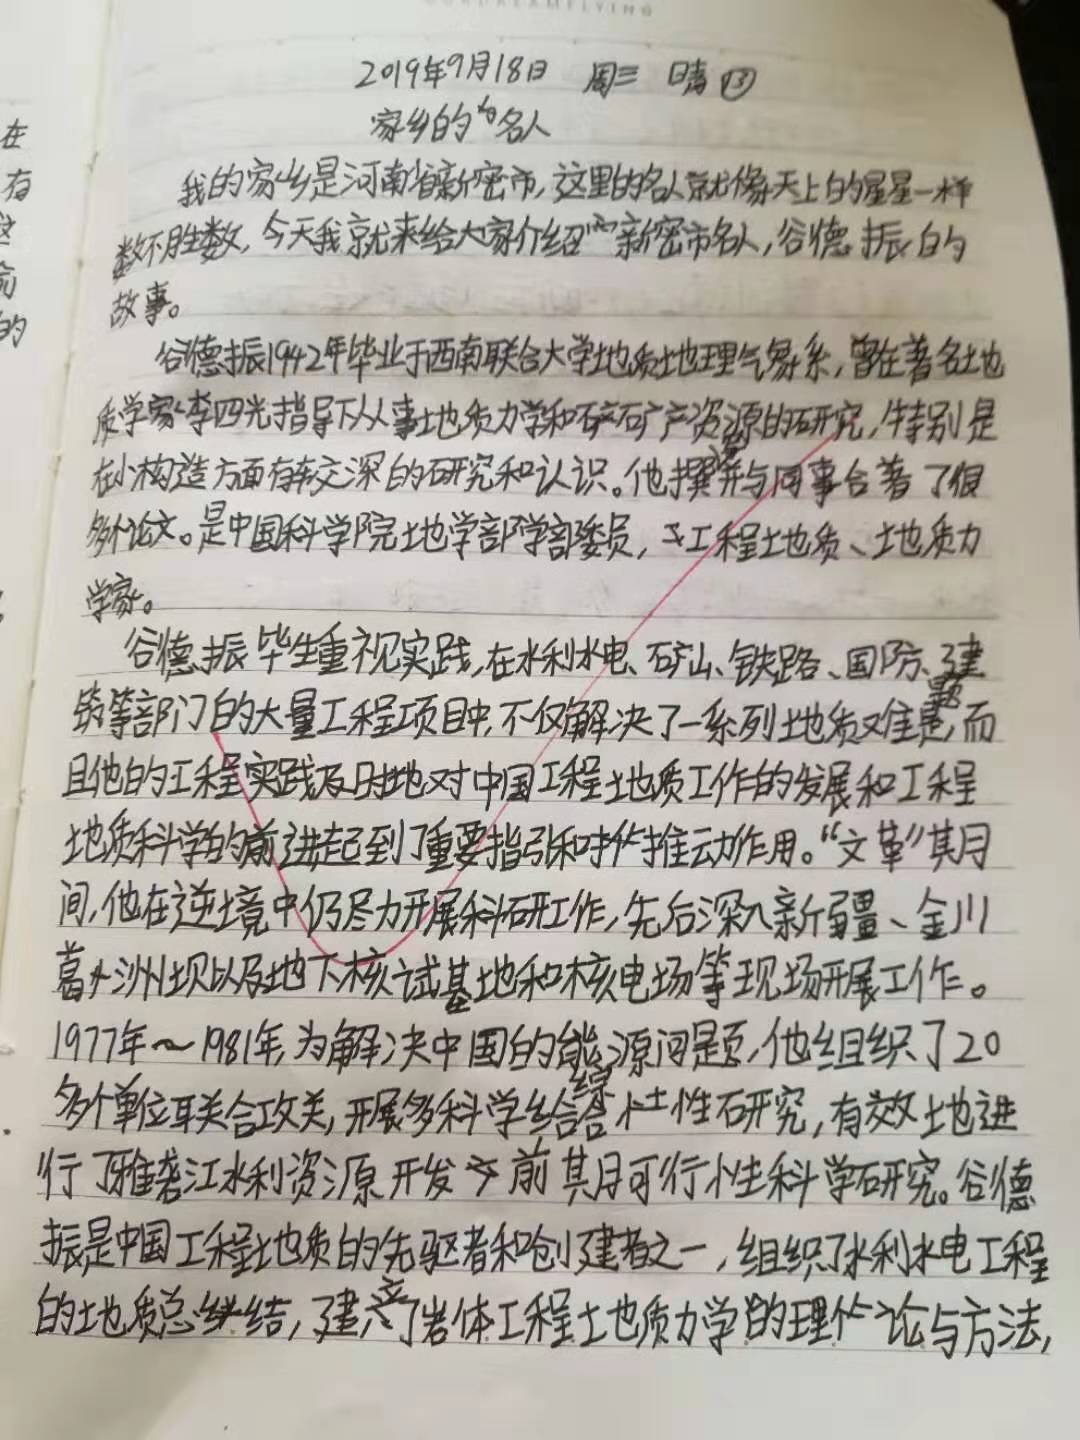 2019年9月18日 周三 晴 13
家乡的名人
我的家乡是河南省新密市,这里的名人就像天上的星星一样
数不胜数,今天我就来给大家介绍新密市名人,谷德振的
故事。
谷德振1942年毕业于西南联合大学地质地理气象系,曾在著名地
质学家李四光指导下从事地质力学和矿产资源的研究,特别是
在小构造方面有较深的研究和认识。他撰并与同事合著了很
多论文。是中国科学院地学部学部委员,工程地质、地质力
学家。
谷德振毕生重视实践,在水利水电、矿山、铁路、国防、建
筑等部门的大量工程项目中,不仅解决了一系列地质难题,而
且他的工程实践及时地对中国工程地质工作的发展和工程
地质科学的前进起到了重要指引和推动作用。“文革”期
间,他在逆境中仍尽力开展科研工作,先后深入新疆、金川
葛洲坝以及地下核试基地和核电场等现场开展工作。
1977年~1981年,为解决中国的能源问题,他组织了20
多个单位联合攻关,开展多科学综合性研究,有效地进
行了雅砻江水利资源开发前期可行性科学研究。谷德
振是中国工程地质的先驱者和创建者之一,组织了水利水电工程
的地质总结,建立了岩体工程地质力学的理论与方法,
在
有
这
的